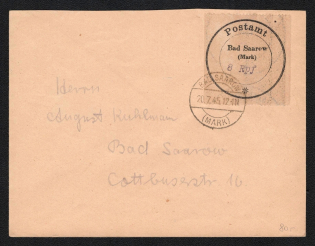 Postamt
Bad Saarow
(Mark)
8 Rpf
BAD SAAROW
(MARK)
Herrn
August Kuhlman
Bad Saarow
Cottbuserstr 16